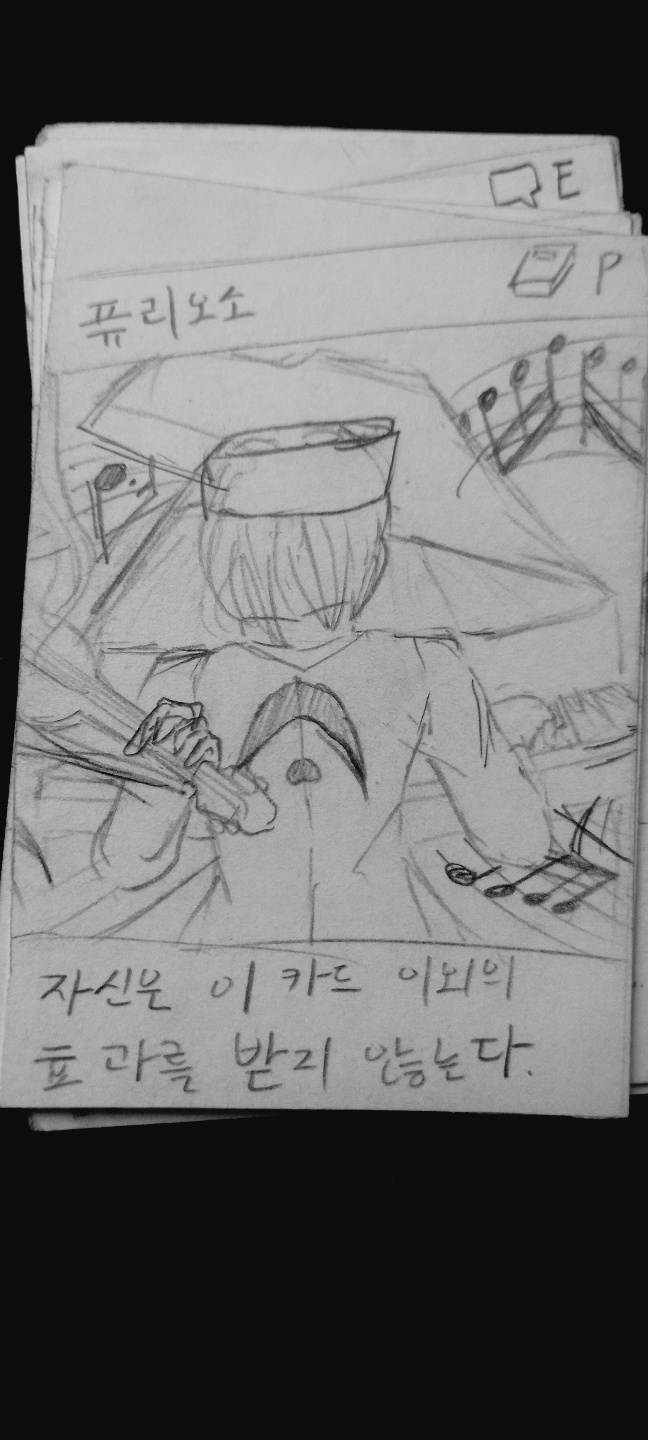 E
P
퓨리오소
자신은 이 카드 이외의
효과를 받지 않는다.